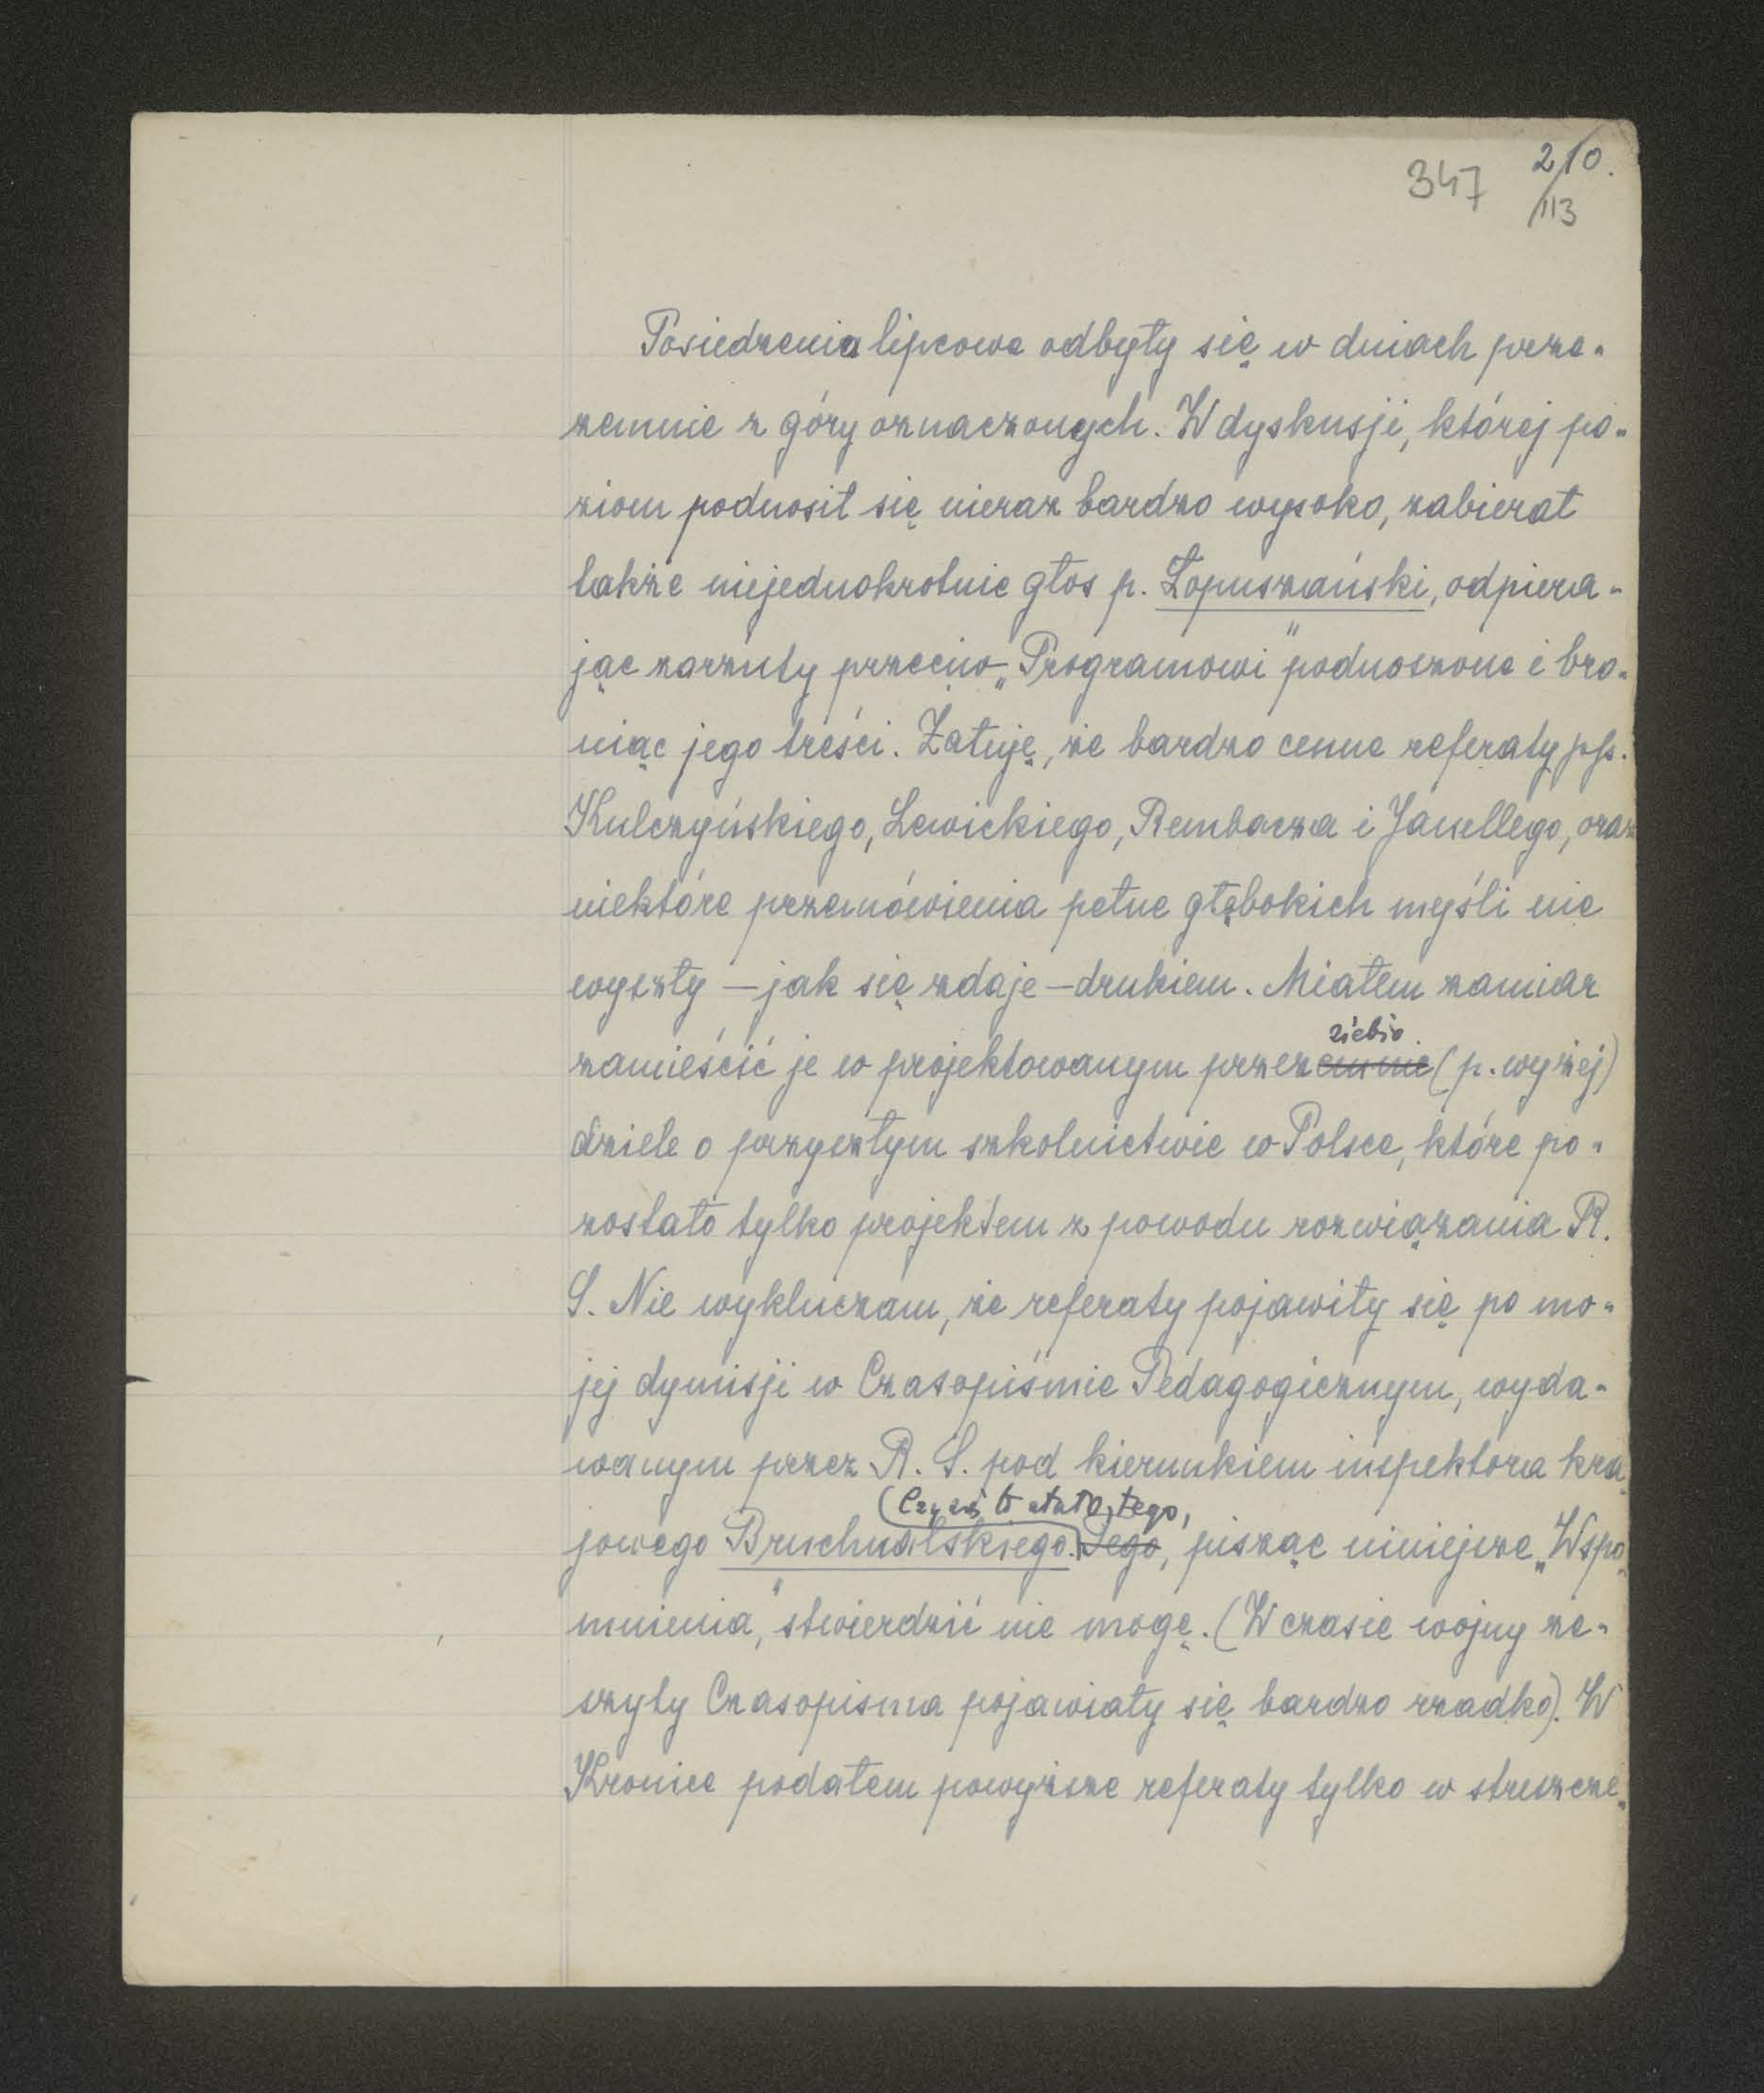 347 210.
/113
Posiedzenia lipcowe odbyły się w dniach prze-
zemnie z góry oznaczonych. W dyskusji, której po-
ziom podnosił się nieraz bardzo wysoko, zabierał
także niejednokrotnie głos p. Łopuszański, odpiera-
jąc zarzuty przeciw „Programowi" podnoszone i bro-
niąc jego treści. Żałuję, że bardzo cenne referaty pp.
Kulczyńskiego, Lewickiego, Rembacza i Janellego, oraz
niektóre przemówienia pełne głębokich myśli nie
wyszły – jak się zdaje – drukiem. Miałem zamiar
siebie
zamieścić je w projektowanym przezemnie (p. wyżej)
dziele o przyszłym szkolnictwie w Polsce, które po-
zostało tylko projektem z powodu rozwiązania R.
S. Nie wykluczam, że referaty pojawiły się po mo-
jej dymisji w Czasopiśmie Pedagogicznym, wyda-
wanym przez R. S. pod kierunkiem inspektora kra-
Czy się to stało, tego,
jowego Bruchnalskiego. Tego, pisząc niniejsze „Wspo-
mnienia", stwierdzić nie mogę. (W czasie wojny ze-
szyty Czasopisma pojawiały się bardzo rzadko). W
Kronice podałem powyższe referaty tylko w streszcze-